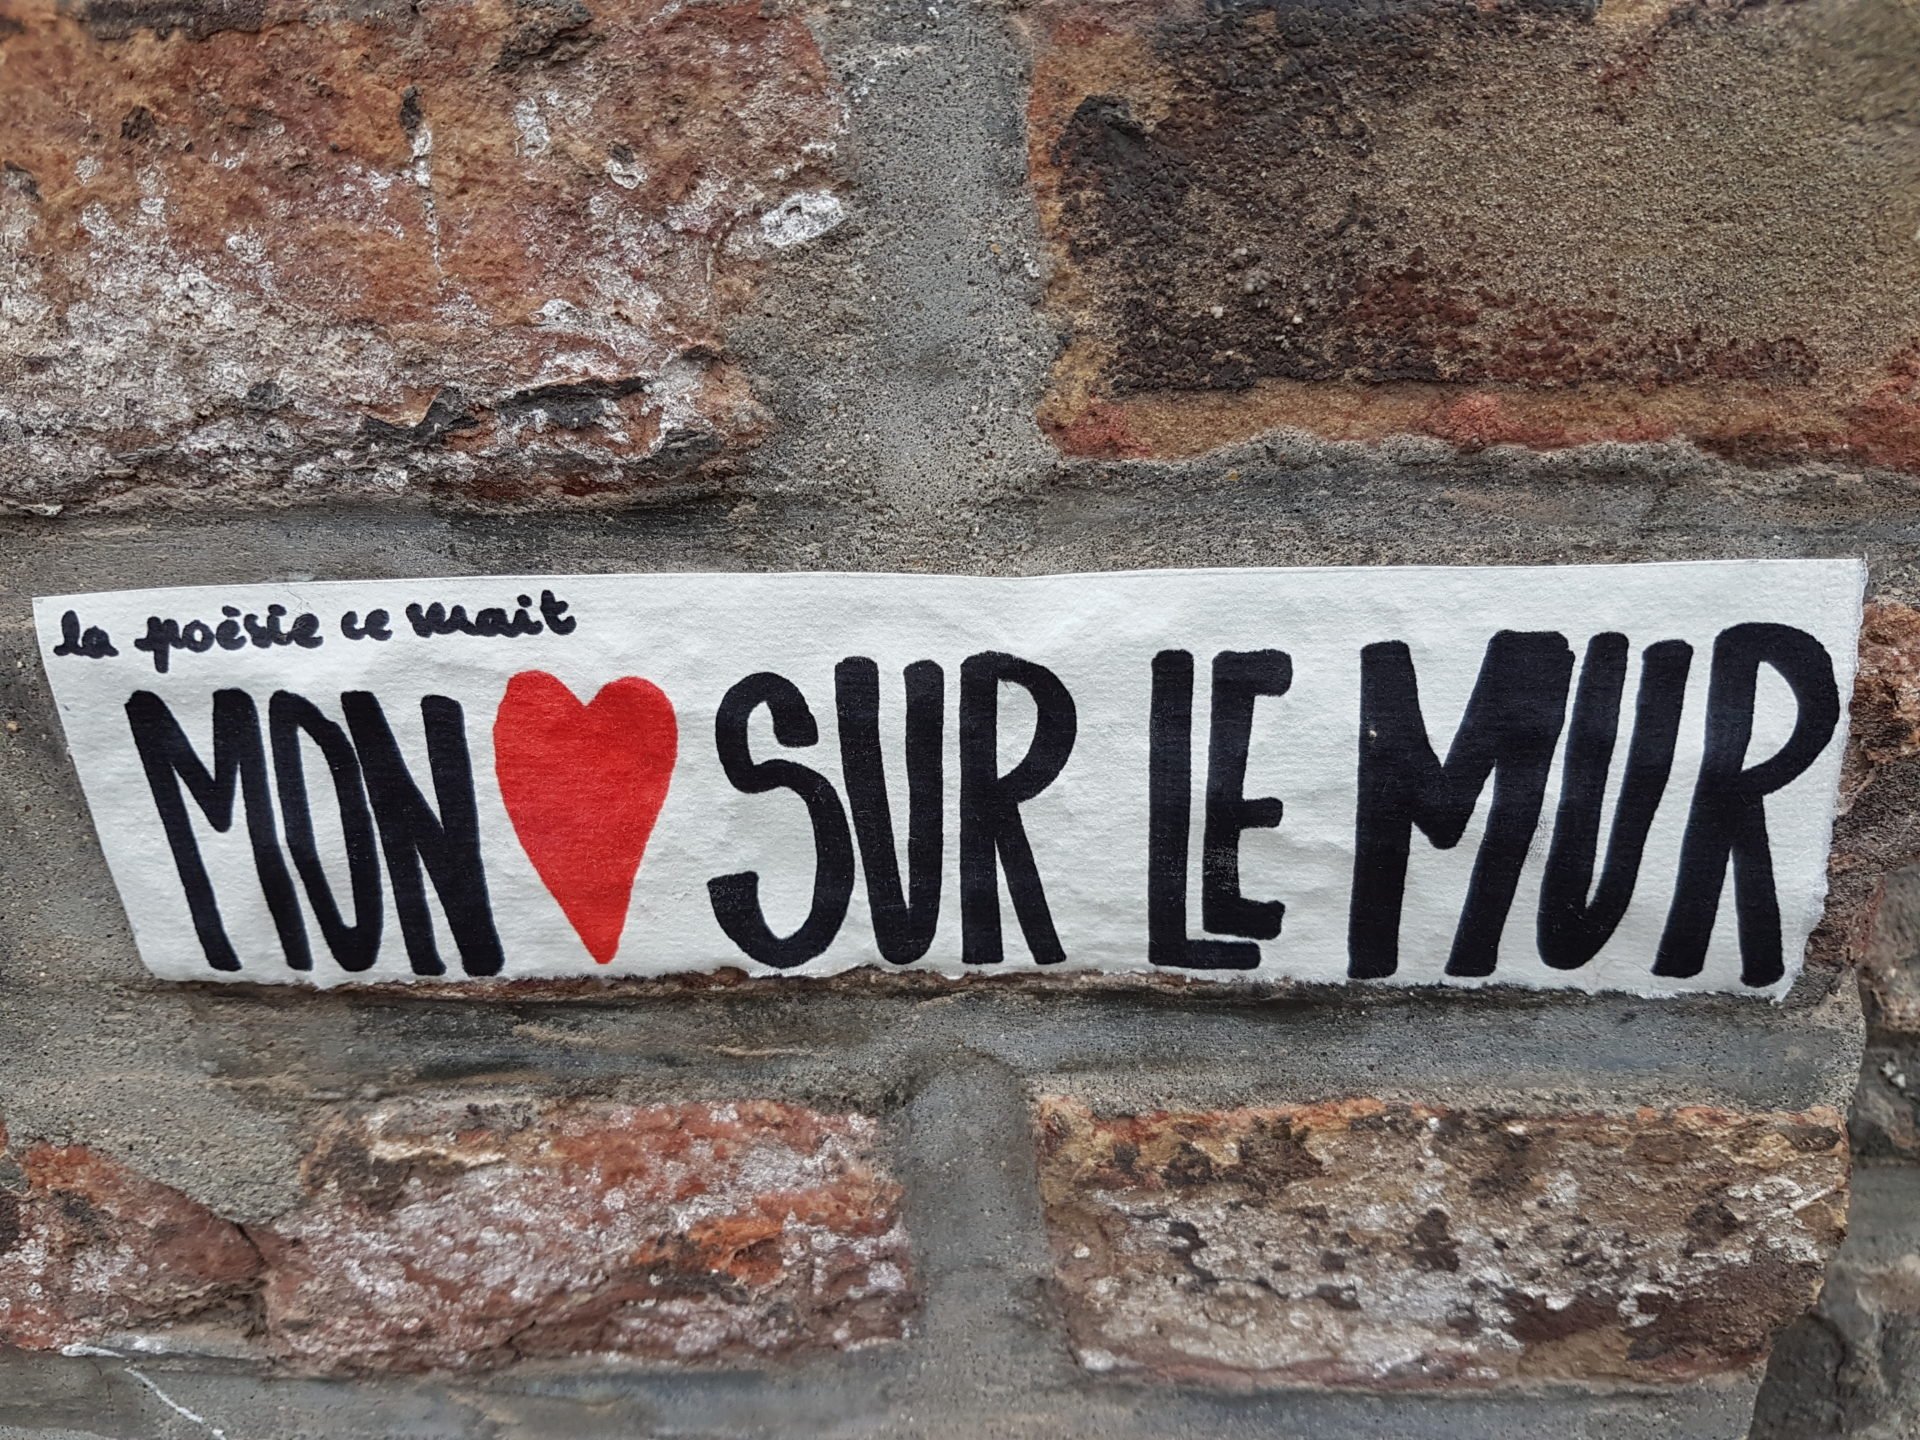 la poésie ce serait
MON ❤ SUR LE MUR